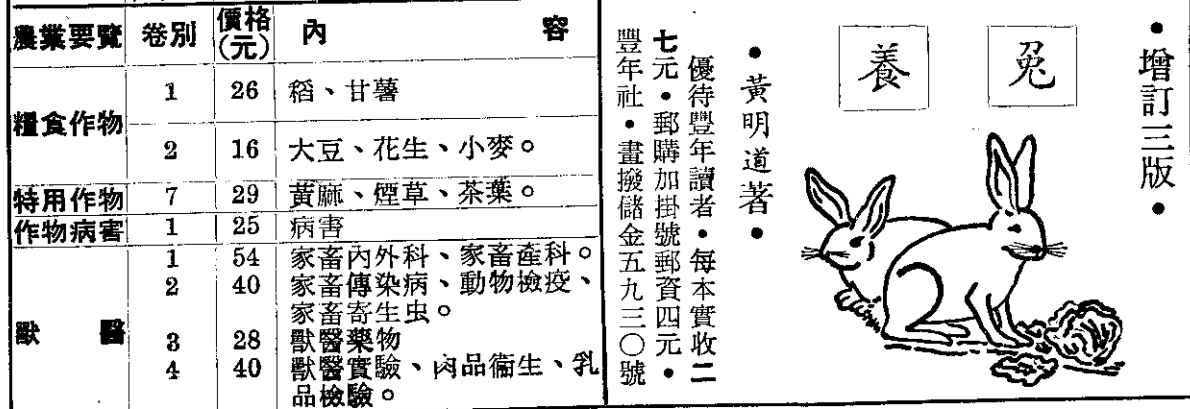 農業要覽 卷別 價格(元) 內容
糧食作物 1 26 稻、甘薯
2 16 大豆、花生、小麥。
特用作物 7 29 黃麻、煙草、茶葉。
作物病害 1 25 病害
獸醫 1 54 家畜內外科、家畜產科。
2 40 家畜傳染病、動物檢疫、
家畜寄生虫。
3 28 獸醫藥物
4 40 獸醫實驗、肉品衞生、乳
品檢驗。
•增訂三版•
養兔
•黃明道著•
優待豐年讀者•每本實收二
七元•郵購加掛號郵資四元•
豐年社•畫撥儲金五九三〇號